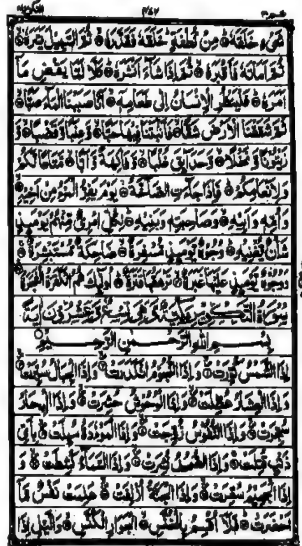 شَيْءٍ خَلَقَهُ مِن نُّطْفَةٍ خَلَقَهُ فَقَدَّرَهُ ثُمَّ السَّبِيلَ يَسَّرَهُ
ثُمَّ أَمَاتَهُ فَأَقْبَرَهُ ثُمَّ إِذَا شَاءَ أَنشَرَهُ كَلَّا لَمَّا يَقْضِ مَا
أَمَرَهُ فَلْيَنظُرِ الْإِنسَانُ إِلَىٰ طَعَامِهِ أَنَّا صَبَبْنَا الْمَاءَ صَبًّا
ثُمَّ شَقَقْنَا الْأَرْضَ شَقًّا فَأَنبَتْنَا فِيهَا حَبًّا وَعِنَبًا وَقَضْبًا وَ
زَيْتُونًا وَنَخْلًا وَحَدَائِقَ غُلْبًا وَفَاكِهَةً وَأَبًّا مَّتَاعًا لَّكُمْ
وَلِأَنْعَامِكُمْ فَإِذَا جَاءَتِ الصَّاخَّةُ يَوْمَ يَفِرُّ الْمَرْءُ مِنْ أَخِيهِ
وَأُمِّهِ وَأَبِيهِ وَصَاحِبَتِهِ وَبَنِيهِ لِكُلِّ امْرِئٍ مِّنْهُمْ يَوْمَئِذٍ
شَأْنٌ يُغْنِيهِ وُجُوهٌ يَوْمَئِذٍ مُّسْفِرَةٌ ضَاحِكَةٌ مُّسْتَبْشِرَةٌ
وَوُجُوهٌ يَوْمَئِذٍ عَلَيْهَا غَبَرَةٌ تَرْهَقُهَا قَتَرَةٌ أُولَٰئِكَ هُمُ الْكَفَرَةُ الْفَجَرَةُ
سُورَةُ التَّكْوِيرِ مَكِّيَّةٌ وَهِيَ تِسْعٌ وَعِشْرُونَ آيَةً
بِسْمِ اللَّهِ الرَّحْمَٰنِ الرَّحِيمِ
إِذَا الشَّمْسُ كُوِّرَتْ وَإِذَا النُّجُومُ انكَدَرَتْ وَإِذَا الْجِبَالُ سُيِّرَتْ
وَإِذَا الْعِشَارُ عُطِّلَتْ وَإِذَا الْوُحُوشُ حُشِرَتْ وَإِذَا الْبِحَارُ
سُجِّرَتْ وَإِذَا النُّفُوسُ زُوِّجَتْ وَإِذَا الْمَوْءُودَةُ سُئِلَتْ بِأَيِّ
ذَنبٍ قُتِلَتْ وَإِذَا الصُّحُفُ نُشِرَتْ وَإِذَا السَّمَاءُ كُشِطَتْ وَ
إِذَا الْجَحِيمُ سُعِّرَتْ وَإِذَا الْجَنَّةُ أُزْلِفَتْ عَلِمَتْ نَفْسٌ مَّا
أَحْضَرَتْ فَلَا أُقْسِمُ بِالْخُنَّسِ الْجَوَارِ الْكُنَّسِ وَاللَّيْلِ إِذَا